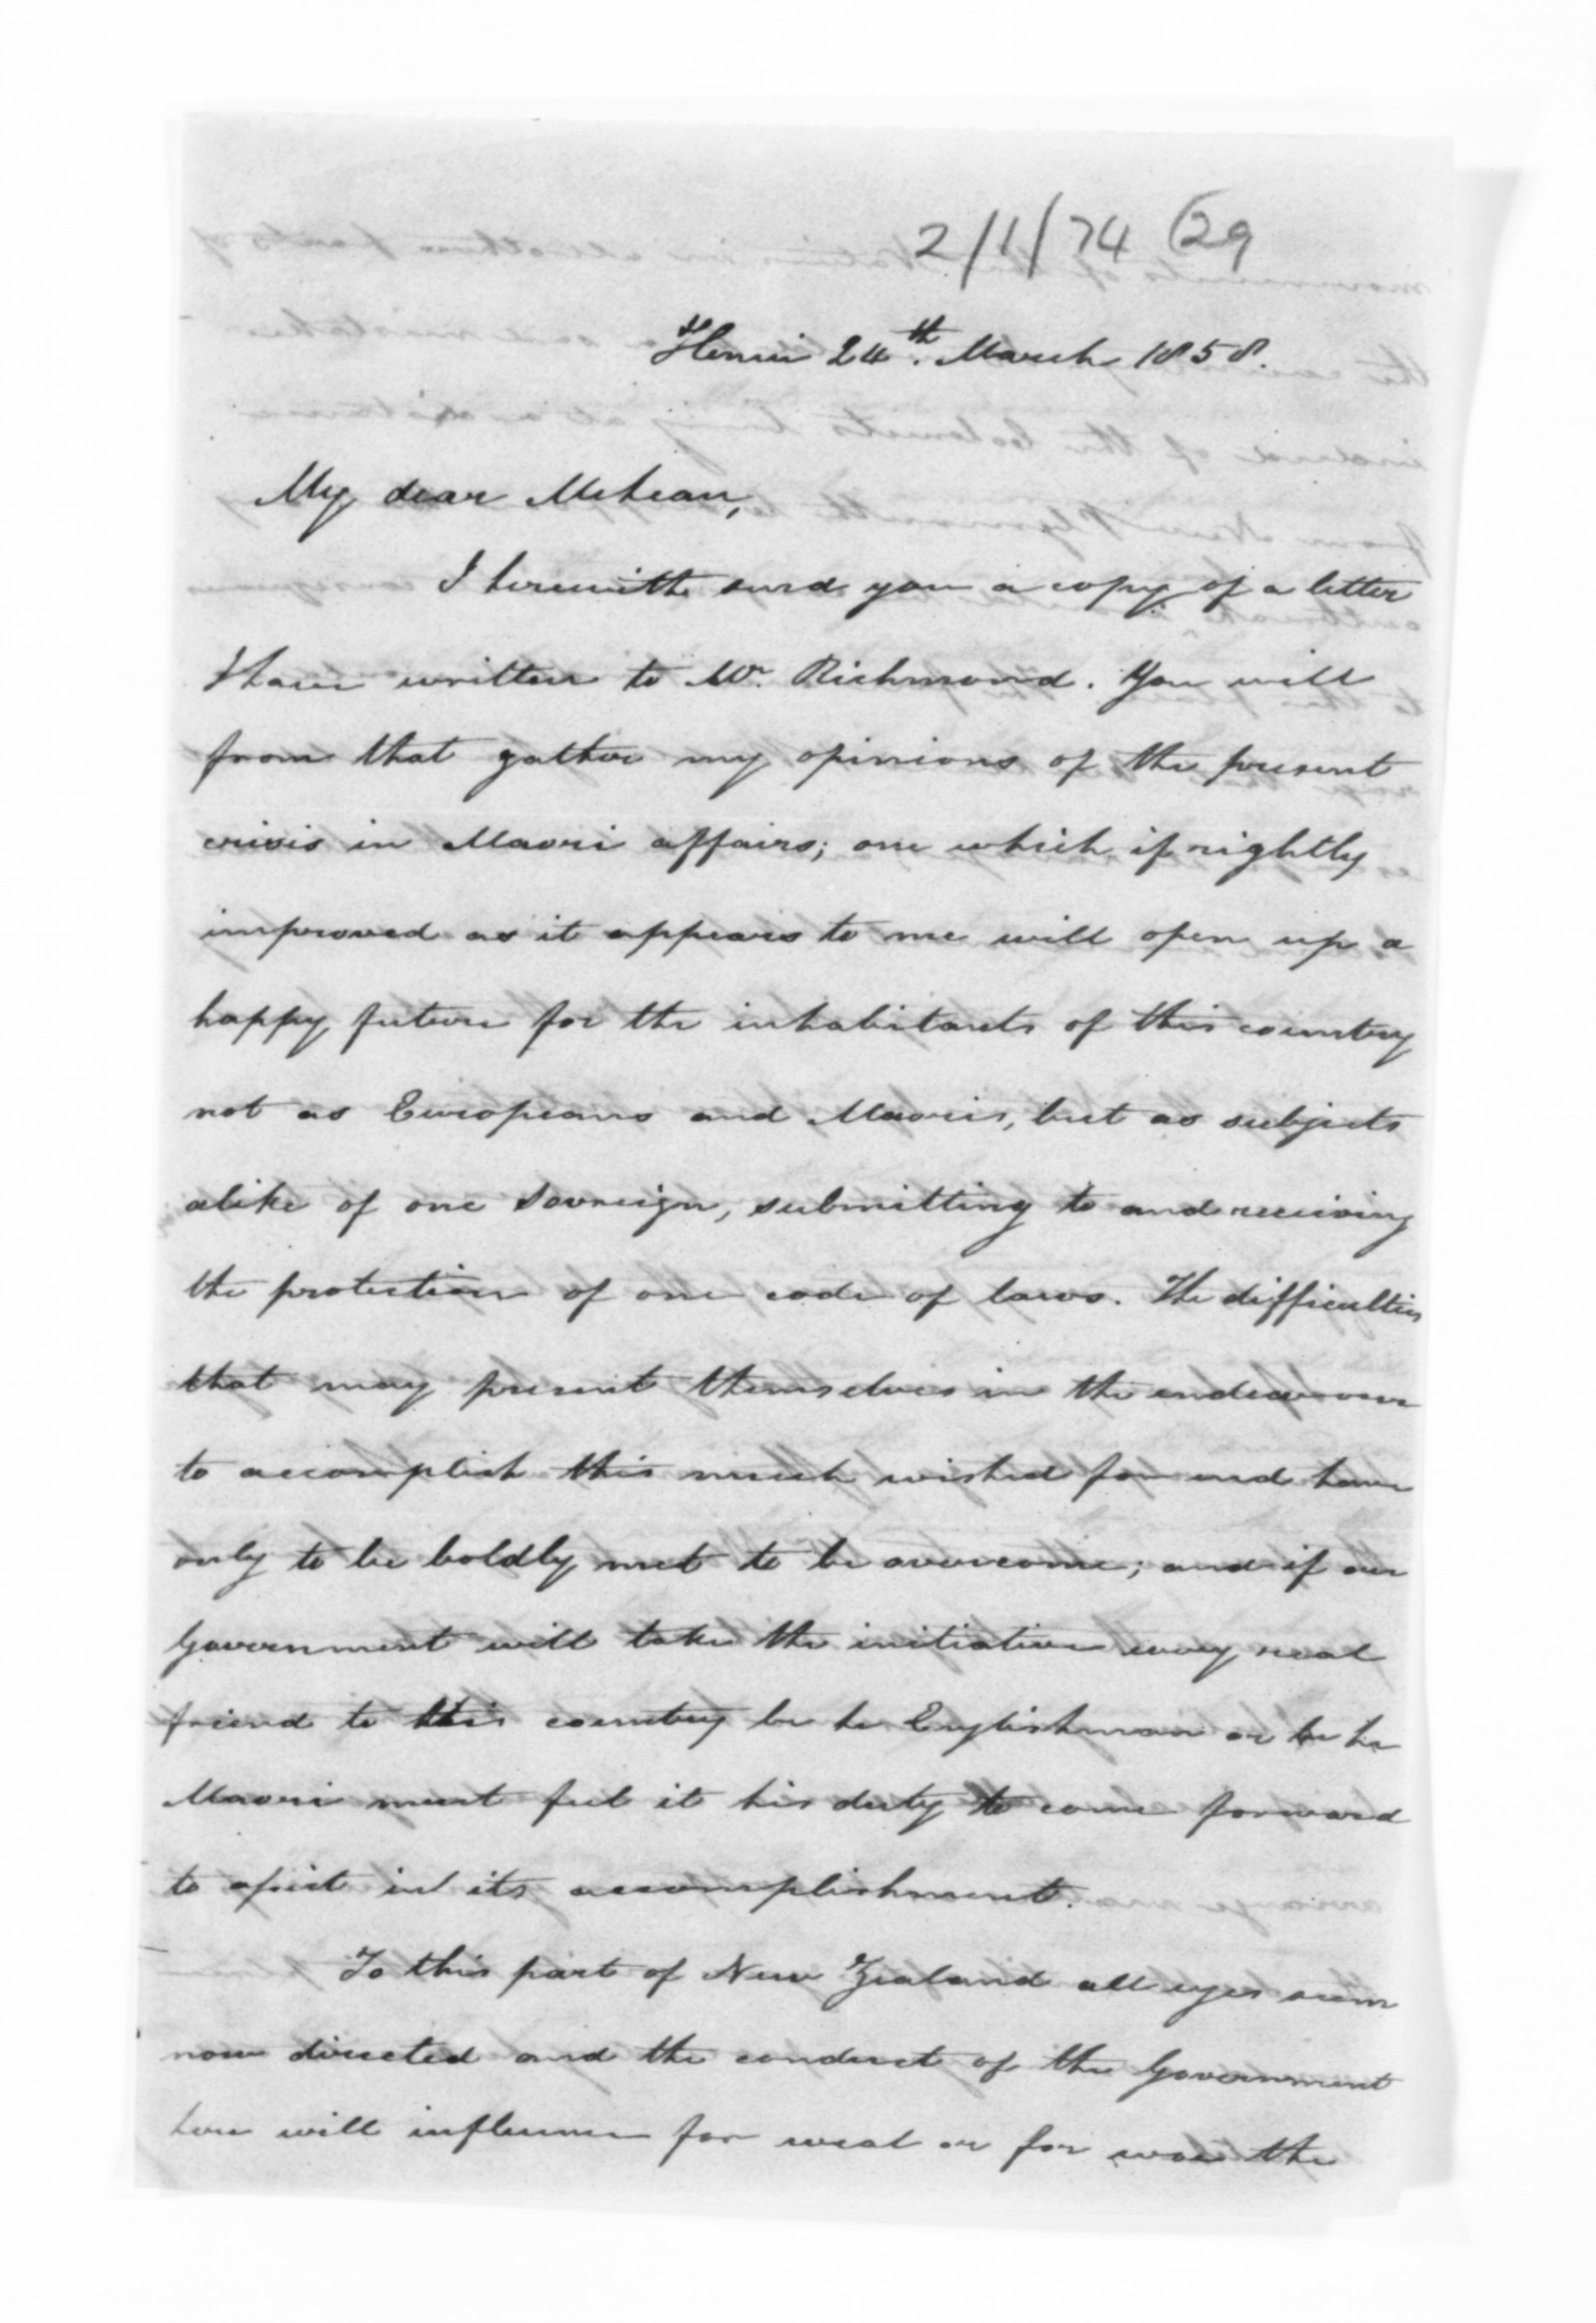 2/1/74 (29
Henui 24th. March 1858.
My dear McLean,
I herewith send you a copy of a letter
I have written to Mr. Richmond. You will
from that gather my opinions of the present
crisis in Maori affairs; one which if rightly
improved as it appears to me will open up a
happy future for the inhabitants of this country
not as Europeans and Maoris, but as subjects
alike of one Sovreign, submitting to and receiving
the protection of one code of laws. The difficulties
that may present themselves in the endeavour
to accomplish this much wished for end have
only to be boldly met to be overcome; and if our
Government will take the initiative every real
friend to this country be he Englishman or be he
Maori must feel it his duty to come forward
to assist in its accomplishment.
To this part of New Zealand all eyes seem
now directed and the conduct of the Government
here will influence for weal or for woe the